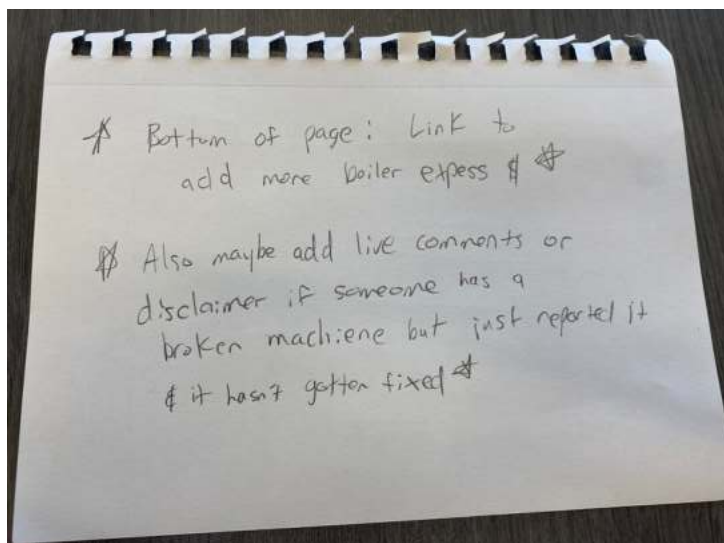 ☆ Bottom of page: Link to
add more boiler expess $ ☆
☆ Also maybe add live comments or
disclaimer if someone has a
broken machiene but just reported it
& it hasn't gotten fixed ☆